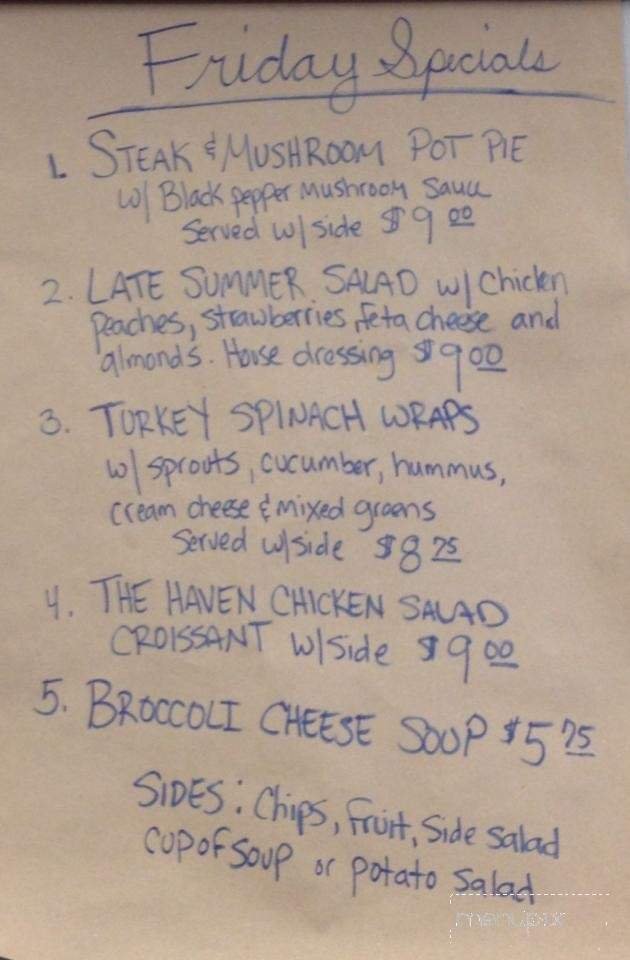 Friday Specials
1. STEAK & MUSHROOM POT PIE
w/ Black pepper Mushroom Sauce
Served w/ side $9 00
2. LATE SUMMER SALAD w/ Chicken
Peaches, Strawberries, feta cheese and
almonds. House dressing $9 00
3. TURKEY SPINACH WRAPS
w/ sprouts, cucumber, hummus,
cream cheese & mixed greens
Served w/side $8 75
4. THE HAVEN CHICKEN SALAD
CROISSANT w/Side $9 00
5. BROCCOLI CHEESE SOUP $5 75
SIDES: Chips, Fruit, Side Salad
CUP OF SOUP or Potato Salad
menupix